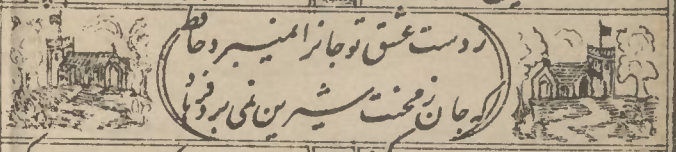 ز دست عشق تو جانرا نمیبرد حافظ
که جان ز محنت شیرین نمی برد فرهاد